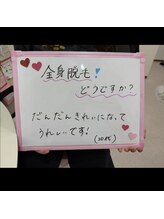 全身脱毛！
どうですか？
だんだんきれいになって
うれしいです！
(20代)